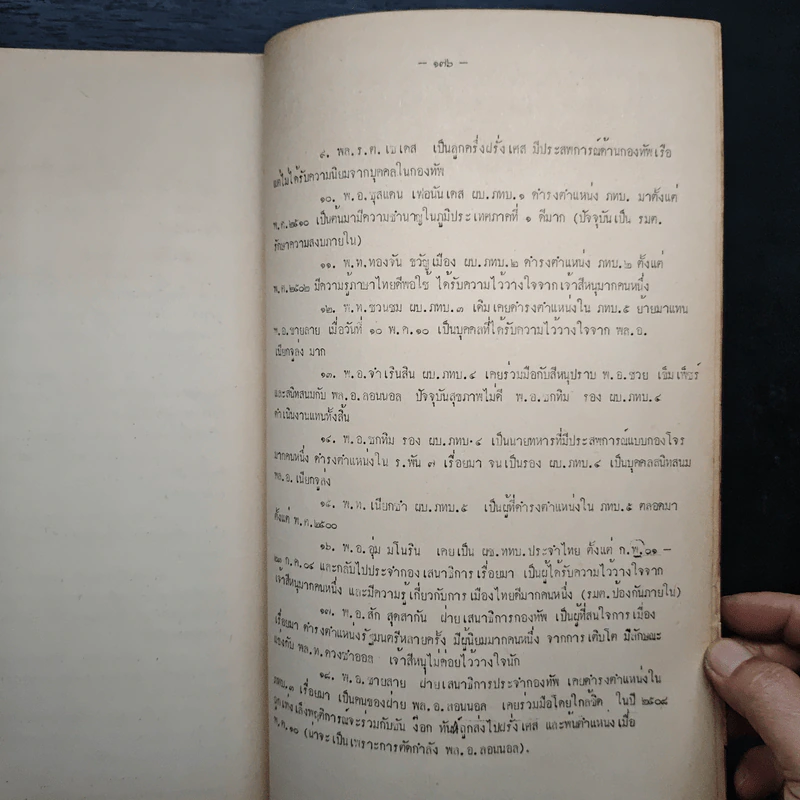 - ๑๗๖ -
๙. พล.ร.ต. เบเคส เป็นลูกครึ่งฝรั่งเศส มีประสพการณ์ด้านกองทัพเรือ
แต่ไม่ได้รับความนิยมจากบุคคลในกองทัพ
๑๐. พ.อ.ซุสแดน เฟอนันเดส ผบ.ภทบ.๑ ดำรงตำแหน่ง ภทบ. มาตั้งแต่
พ.ศ.๒๕๑๐ เป็นต้นมามีความชำนาญในภูมิประเทศภาคที่ ๑ ดีมาก (ปัจจุบันเป็น รมต.
รักษาความสงบภายใน)
๑๑. พ.ท.ทองจัน ขวัญเมือง ผบ.ภทบ.๒ ดำรงตำแหน่ง ภทบ.๒ ตั้งแต่
พ.ศ.๒๕๐๒ มีความรู้ภาษาไทยดีพอใช้ ได้รับความไว้วางใจจากเจ้าสีหนุมากคนหนึ่ง
๑๒. พ.ท.ชวนชม ผบ.ภทบ.๓ เดิมเคยดำรงตำแหน่งใน ภทบ.๕ ย้ายมาแทน
พ.อ.ชายลาย เมื่อวันที่ ๑๐ พ.ค.๑๐ เป็นบุคคลที่ได้รับความไว้วางใจจาก พล.อ.
เนียกจูล่ง มาก
๑๓. พ.อ.จำเรินสิน ผบ.ภทบ.๔ เคยร่วมมือกับสีหนุปราบ พ.อ.ชวย เข็มเพ็ชร์
และสนิทสนมกับ พล.อ.ลอนนอล ปัจจุบันสุขภาพไม่ดี พ.อ.ซกทิม รอง ผบ.ภทบ.๔
ดำเนินงานแทนทั้งสิ้น
๑๔. พ.อ.ซกทิม รอง ผบ.ภทบ.๔ เป็นนายทหารที่มีประสพการณ์แบบกองโจร
มากคนหนึ่ง ดำรงตำแหน่งใน ร.พัน ๗ เรื่อยมา จนเป็นรอง ผบ.ภทบ.๔ เป็นบุคคลสนิทสนม
พล.อ.เนียกจูล่ง
๑๕. พ.ท.เนียกซำ ผบ.ภทบ.๕ เป็นผู้ที่ดำรงตำแหน่งใน ภทบ.๕ ตลอดมา
ตั้งแต่ พ.ศ.๒๕๐๐
๑๖. พ.อ.อุ่ม มโนริน เคยเป็น ผช.ทหบ.ประจำไทย ตั้งแต่ ก.พ.๐๑ -
ก.ค.๐๔ และกลับไปประจำกองเสนาธิการเรื่อยมา เป็นผู้ได้รับความไว้วางใจจาก
เจ้าสีหนุมากคนหนึ่ง และมีความรู้เกี่ยวกับการเมืองไทยดีมากคนหนึ่ง (รมต.ป้องกันภายใน)
๑๗. พ.อ.สัก สุดสากัน ฝ่ายเสนาธิการกองทัพ เป็นผู้ที่สนใจการเมือง
เรื่อยมา ดำรงตำแหน่งรัฐมนตรีหลายครั้ง มีผู้นิยมมากคนหนึ่ง จากการเติบโต มีลักษณะ
แข่งกับ พล.ท.ดวงซำออล เจ้าสีหนุไม่ค่อยไว้วางใจนัก
๑๘. พ.อ.ชายลาย ฝ่ายเสนาธิการประจำกองทัพ เคยดำรงตำแหน่งใน
ภทบ.๓ เรื่อยมา เป็นคนของฝ่าย พล.อ.ลอนนอล เคยร่วมมือโดยใกล้ชิด ในปี ๒๕๐๘
ถูกเพ่งเล็งพฤติการณ์จะร่วมกับซัน ง๊อก ทันห์ถูกส่งไปฝรั่งเศส และพ้นตำแหน่งเมื่อ
พ.ค.๑๐ (น่าจะเป็นเพราะการตัดกำลัง พล.อ.ลอนนอล).